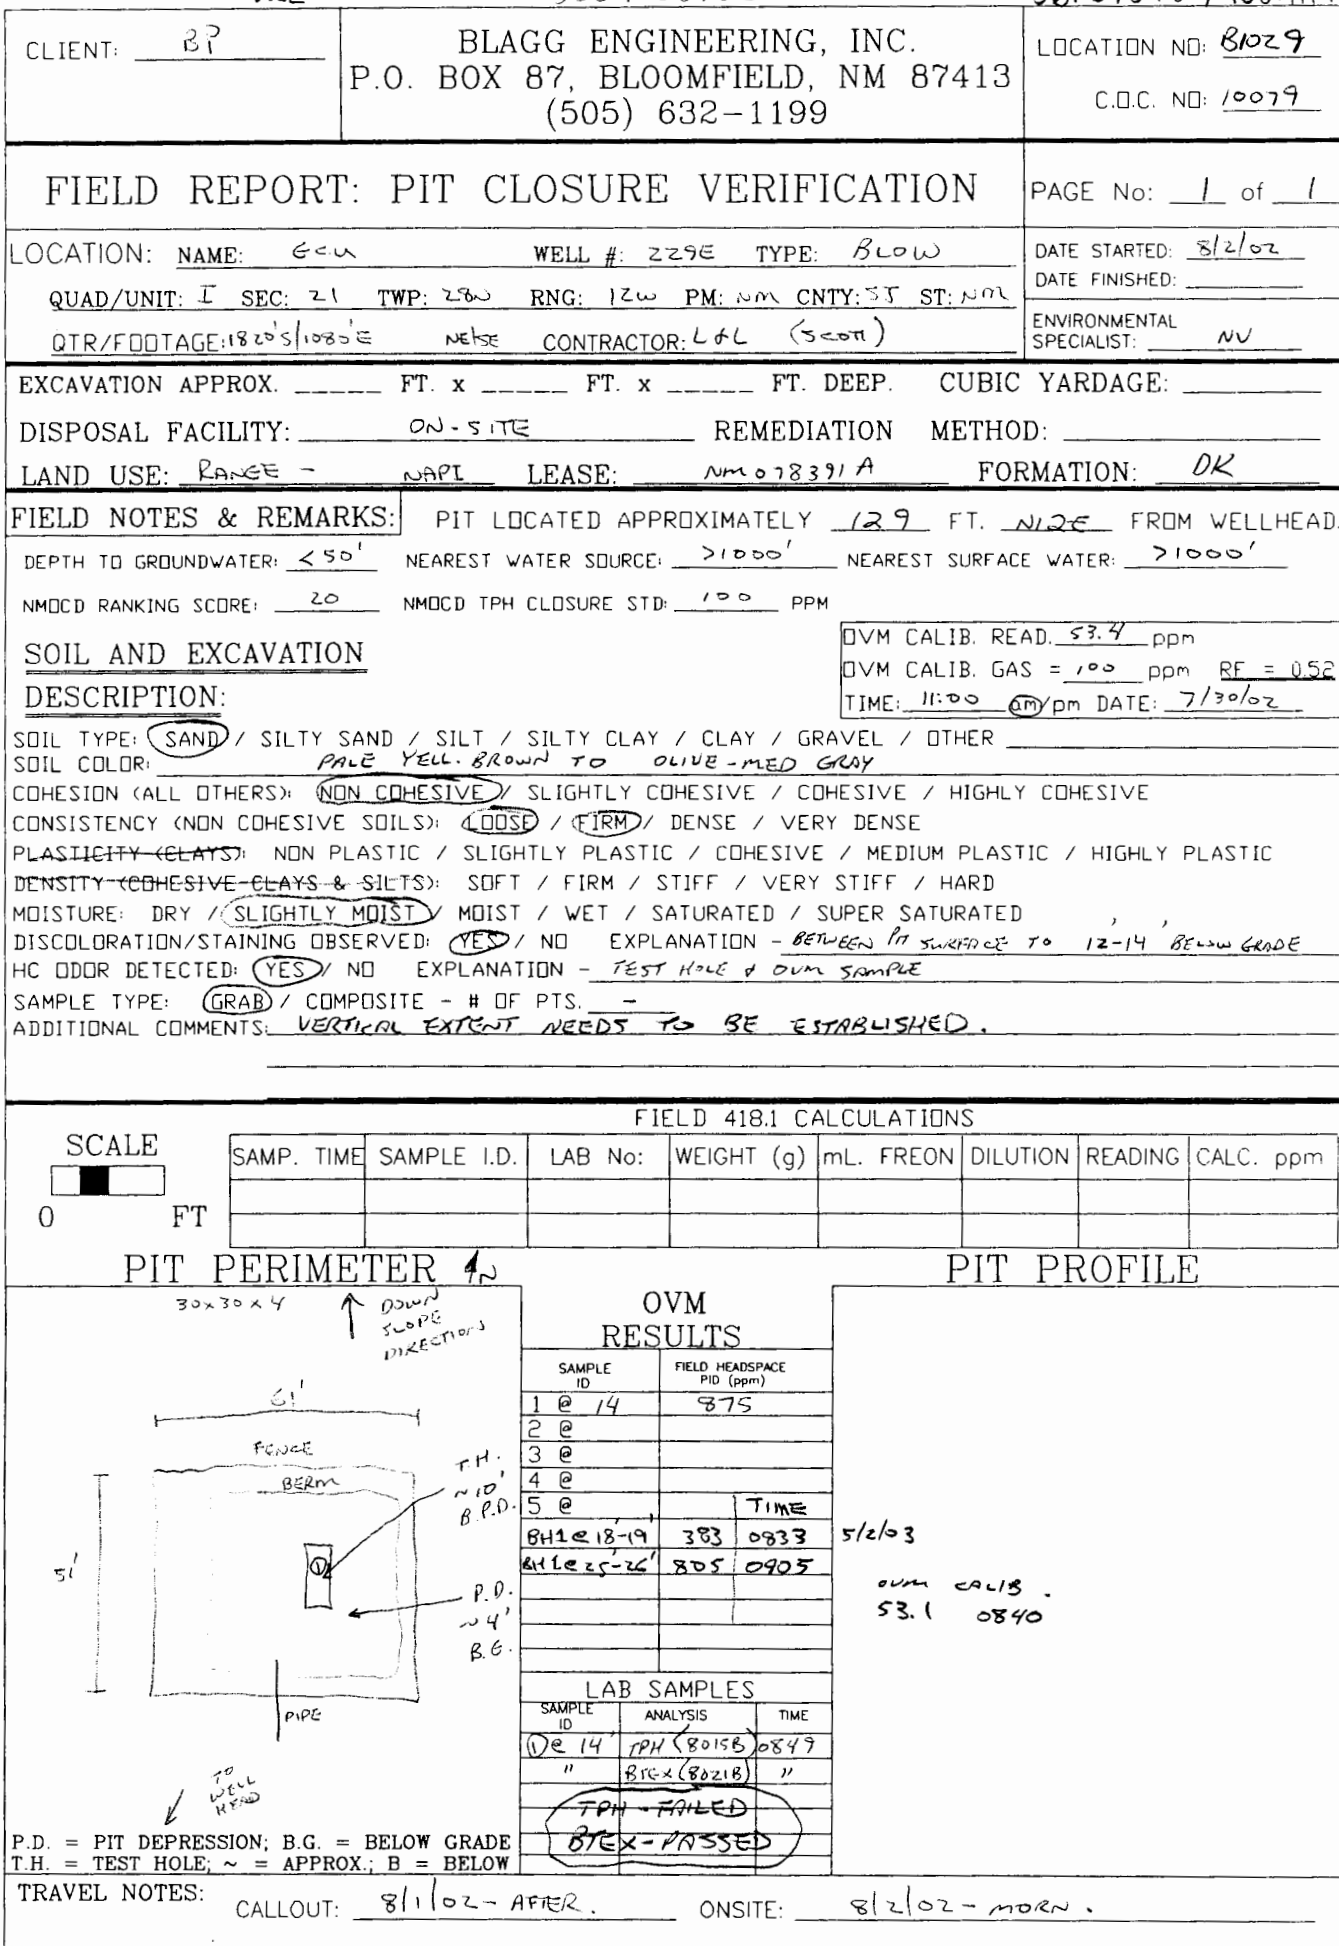 CLIENT: BP
BLAGG ENGINEERING, INC.
P.O. BOX 87, BLOOMFIELD, NM 87413
(505) 632-1199
LOCATION NO: B1029
C.O.C. NO: 10079
FIELD REPORT: PIT CLOSURE VERIFICATION
PAGE No: 1 of 1
LOCATION: NAME: GCU WELL #: 229E TYPE: BLOW
QUAD/UNIT: I SEC: 21 TWP: 28N RNG: 12W PM: NM CNTY: SJ ST: NM
QTR/FOOTAGE: 1820'S/1080'E NE/SE CONTRACTOR: L&L (SCOTT)
DATE STARTED: 8/2/02
DATE FINISHED:
ENVIRONMENTAL
SPECIALIST: NV
EXCAVATION APPROX. _____ FT. x _____ FT. x _____ FT. DEEP. CUBIC YARDAGE:
DISPOSAL FACILITY: ON-SITE REMEDIATION METHOD:
LAND USE: RANGE - NAPI LEASE: NM078391A FORMATION: DK
FIELD NOTES & REMARKS: PIT LOCATED APPROXIMATELY 129 FT. N12E FROM WELLHEAD.
DEPTH TO GROUNDWATER: <50' NEAREST WATER SOURCE: >1000' NEAREST SURFACE WATER: >1000'
NMOCD RANKING SCORE: 20 NMOCD TPH CLOSURE STD: 100 PPM
SOIL AND EXCAVATION
DESCRIPTION:
OVM CALIB. READ. 53.4 ppm
OVM CALIB. GAS = 100 ppm RF = 0.52
TIME: 11:00 am/pm DATE: 7/30/02
SOIL TYPE: SAND / SILTY SAND / SILT / SILTY CLAY / CLAY / GRAVEL / OTHER
SOIL COLOR: PALE YELL. BROWN TO OLIVE-MED GRAY
COHESION (ALL OTHERS): NON COHESIVE / SLIGHTLY COHESIVE / COHESIVE / HIGHLY COHESIVE
CONSISTENCY (NON COHESIVE SOILS): LOOSE / FIRM / DENSE / VERY DENSE
PLASTICITY (CLAYS): NON PLASTIC / SLIGHTLY PLASTIC / COHESIVE / MEDIUM PLASTIC / HIGHLY PLASTIC
DENSITY (COHESIVE CLAYS & SILTS): SOFT / FIRM / STIFF / VERY STIFF / HARD
MOISTURE: DRY / SLIGHTLY MOIST / MOIST / WET / SATURATED / SUPER SATURATED
DISCOLORATION/STAINING OBSERVED: YES / NO EXPLANATION - BETWEEN PIT SURFACE TO 12'-14' BELOW GRADE
HC ODOR DETECTED: YES / NO EXPLANATION - TEST HOLE & OVM SAMPLE
SAMPLE TYPE: GRAB / COMPOSITE - # OF PTS. -
ADDITIONAL COMMENTS: VERTICAL EXTENT NEEDS TO BE ESTABLISHED.
FIELD 418.1 CALCULATIONS
SCALE
0 FT
SAMP. TIME SAMPLE I.D. LAB No: WEIGHT (g) mL. FREON DILUTION READING CALC. ppm
PIT PERIMETER N
PIT PROFILE
30x30x4
DOWN
SLOPE
DIRECTION
61'
FENCE
BERM
51'
T.H.
~10'
B.P.D.
P.D.
~4'
B.G.
PIPE
TO
WELL
HEAD
OVM
RESULTS
SAMPLE ID FIELD HEADSPACE PID (ppm)
1 @ 14' 875
2 @
3 @
4 @
5 @ TIME
BH1@18'-19' 383 0833 5/2/03
BH1@25'-26' 805 0905
OVM CALIB.
53.1 0840
LAB SAMPLES
SAMPLE ID ANALYSIS TIME
①@ 14' TPH (8015B) 0849
" BTEX (8021B) "
TPH - FAILED
BTEX - PASSED
P.D. = PIT DEPRESSION; B.G. = BELOW GRADE
T.H. = TEST HOLE; ~ = APPROX.; B = BELOW
TRAVEL NOTES: CALLOUT: 8/1/02 - AFTER. ONSITE: 8/2/02 - MORN.